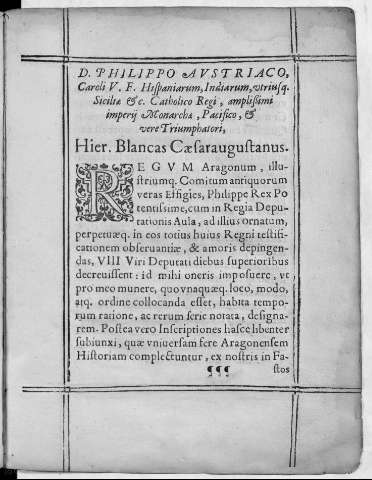 D. PHILIPPO AVSTRIACO,
Caroli V. F. Hispaniarum, Indiarum, vtriusq.
Siciliæ &c. Catholico Regi, amplissimi
imperij Monarchæ, Pacifico, &
vere Triumphatori,
Hier. Blancas Cæsaraugustanus.
REGVM Aragonum, illu-
striumq. Comitum antiquorum
veras Effigies, Philippe Rex Po
tentissime, cum in Regia Depu-
tationis Aula, ad illius ornatum,
perpetuæq. in eos totius huius Regni testifi-
cationem obseruantiæ, & amoris depingen-
das, VIII Viri Deputati diebus superioribus
decreuissent: id mihi oneris imposuere, vt
pro meo munere, quo vnaquæq. loco, modo,
atq. ordine collocanda esset, habita tempo-
rum ratione, ac rerum serie notata, designa-
rem. Postea vero Inscriptiones hasce libenter
subiunxi, quæ vniuersam fere Aragonensem
Historiam complectuntur, ex nostris in Fa-
¶¶¶ stos